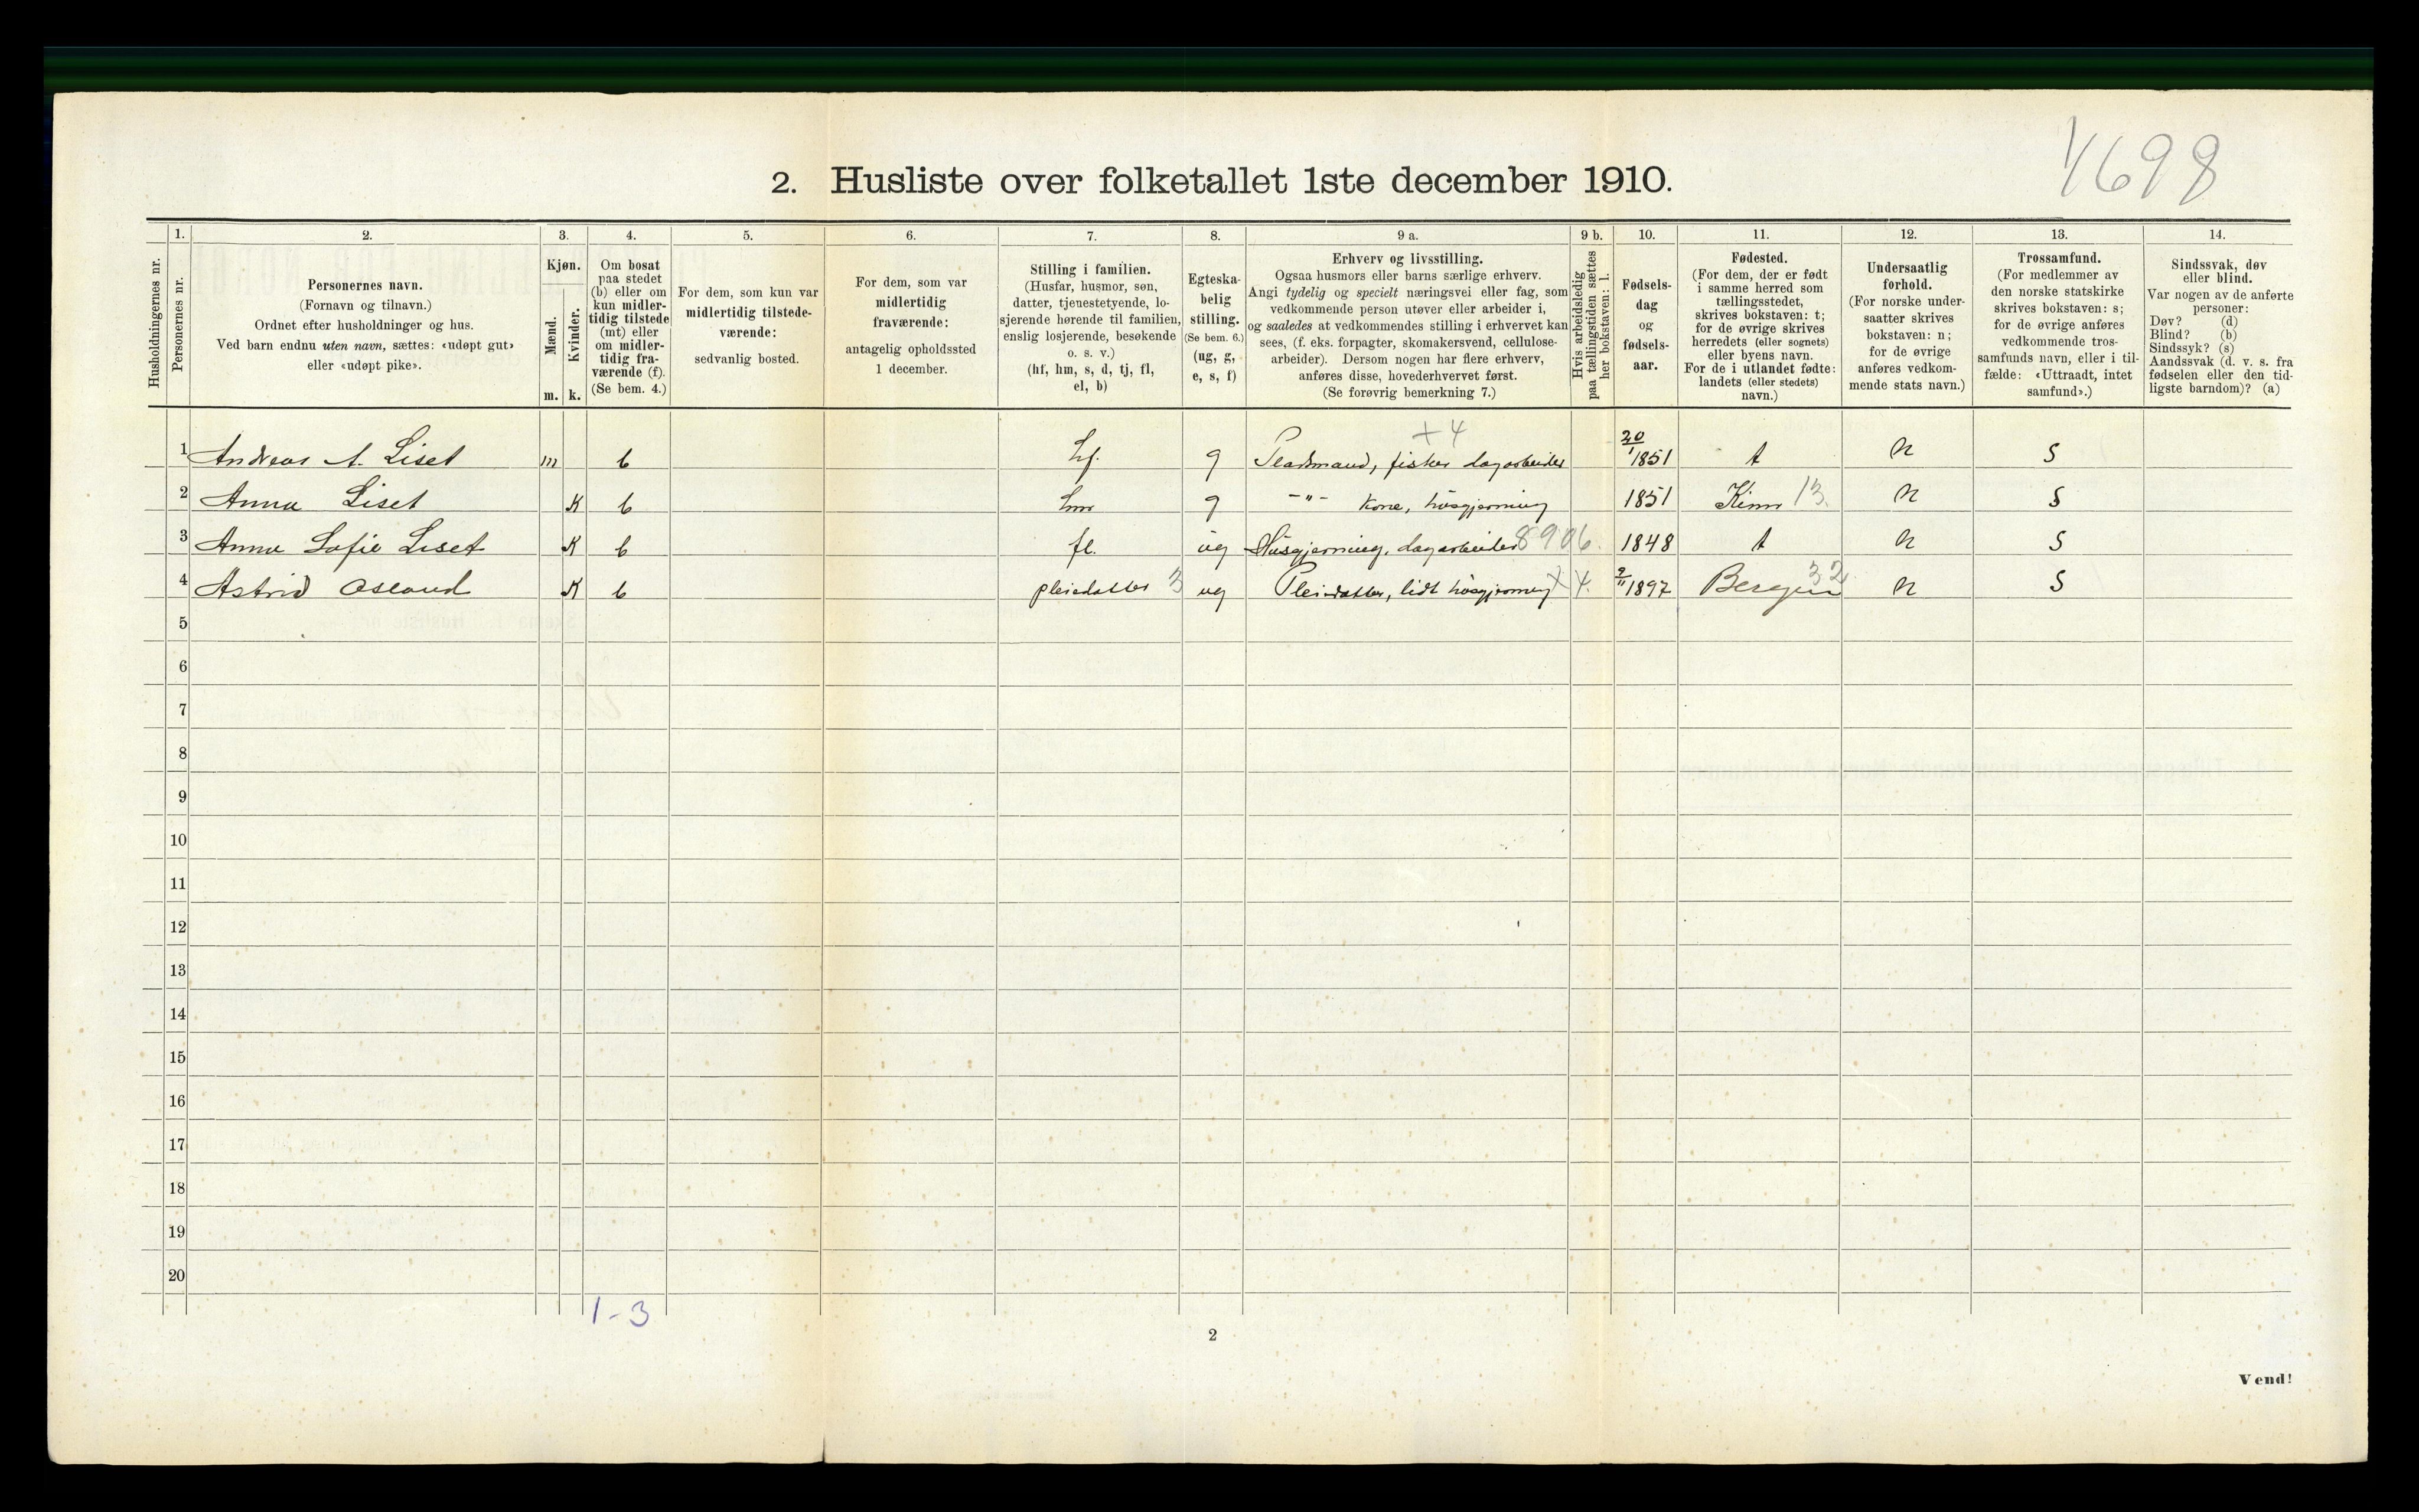 4698
2. Husliste over folketallet 1ste december 1910.
Husholdningernes nr.
1. Personernes nr.
2.
Personernes navn.
(Fornavn og tilnavn.)
Ordnet efter husholdninger og hus.
Ved barn endnu uten navn, sættes: «udøpt gut»
eller «udøpt pike».
3.
Kjøn.
Mænd. Kvinder.
m. k.
4.
Om bosat
paa stedet
(b) eller om
kun midler-
tidig tilstede
(mt) eller
om midler-
tidig fra-
værende (f).
(Se bem. 4.)
5.
For dem, som kun var
midlertidig tilstede-
værende:
sedvanlig bosted.
6.
For dem, som var
midlertidig
fraværende:
antagelig opholdssted
1 december.
7.
Stilling i familien.
(Husfar, husmor, søn,
datter, tjenestetyende, lo-
sjerende hørende til familien,
enslig losjerende, besøkende
o. s. v.)
(hf, hm, s, d, tj, fl,
el, b)
8.
Egteska-
belig
stilling.
(Se bem. 6.)
(ug, g,
e, s, f)
9 a.
Erhverv og livsstilling.
Ogsaa husmors eller barns særlige erhverv.
Angi tydelig og specielt næringsvei eller fag, som
vedkommende person utøver eller arbeider i,
og saaledes at vedkommendes stilling i erhvervet kan
sees, (f. eks. forpagter, skomakersvend, cellulose-
arbeider). Dersom nogen har flere erhverv,
anføres disse, hovederhvervet først.
(Se forøvrig bemerkning 7.)
9 b.
Hvis arbeidsledig
paa tællingstiden sættes
her bokstaven: l.
10.
Fødsels-
dag
og
fødsels-
aar.
11.
Fødested.
(For dem, der er født
i samme herred som
tællingsstedet,
skrives bokstaven: t;
for de øvrige skrives
herredets (eller sognets)
eller byens navn.
For de i utlandet fødte:
landets (eller stedets)
navn.)
12.
Undersaatlig
forhold.
(For norske under-
saatter skrives
bokstaven: n;
for de øvrige
anføres vedkom-
mende stats navn.)
13.
Trossamfund.
(For medlemmer av
den norske statskirke
skrives bokstaven: s;
for de øvrige anføres
vedkommende tros-
samfunds navn, eller i til-
fælde: «Uttraadt, intet
samfund».)
14.
Sindssvak, døv
eller blind.
Var nogen av de anførte
personer:
Døv? (d)
Blind? (b)
Sindssyk? (s)
Aandssvak (d. v. s. fra
fødselen eller den tid-
ligste barndom)? (a)
+4
1 Andreas A. Liset m b hf. g Pladsmand, fisker dagarbeider 20/1 1851 t n s
2 Anna Liset K b hm g -"- kone, husgjerning 1851 Kinn 13. n s
3 Anna Sofie Liset K b fl. ug Husgjerning, dagarbeider 8906. 1848 t n s
4 Astrid Osland K b pleiedatter 3 ug Pleiedatter, lidt husgjerning X 4. 9/11 1897 Bergen 32 n s
5
6
7
8
9
10
11
12
13
14
15
16
17
18
19
20
1-3
2
Vend!